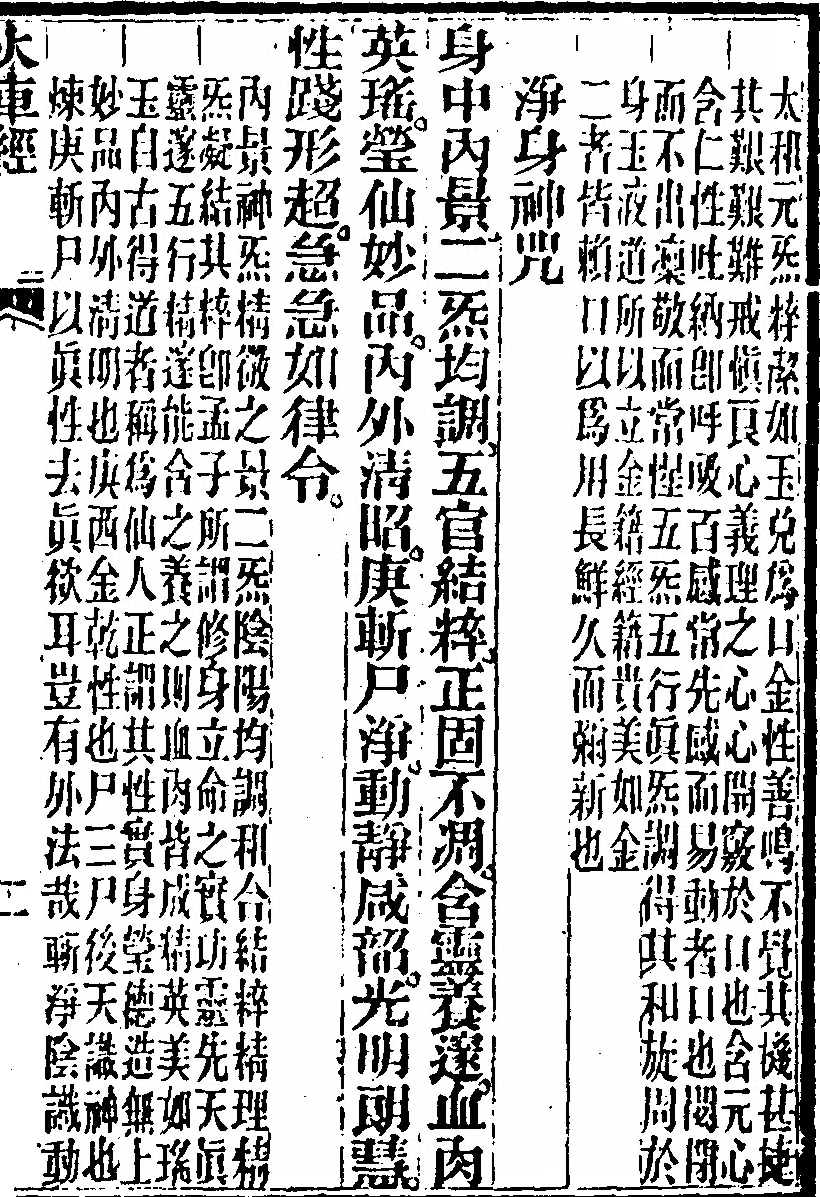 太和元炁粹潔如玉兌爲口金性善鳴不覺其機甚捷
其艱艱難戒愼頁心義理之心心開竅於口也含元心
含仁性吐納卽呼吸百感常先感而易動者口也閟閉
而不出凜敬而常惺五炁五行眞炁調得其和旋周於
身玉液道所以立金籍經籍貴美如金
二者皆賴口以爲用長鮮久而彌新也
淨身神咒
身中內景二炁均調五官結粹正固不凋含靈養邃血肉
英瑤瑩仙妙品內外淸昭庚斬尸淨動靜咸韶光明朗慧
性踐形超急急如律令
內景神炁精微之景二炁陰陽均調和合結粹精理精
炁凝結其粹卽孟子所謂修身立命之實功靈先天眞
靈邃五行精邃能含之養之則血肉皆成精英美如瑤
玉自古得道者稱爲仙人正謂其性實身瑩德造無上
妙品內外淸明也庚西金乾性也尸三尸後天識神也
煉庚斬尸以眞性去眞欲耳豈有外法哉斬淨陰識動
大車經
二